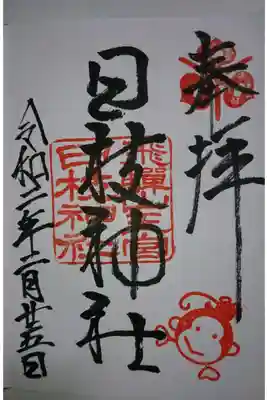 奉拝
日枝神社
飛騨山王宮
日枝神社
令和二年二月廿五日